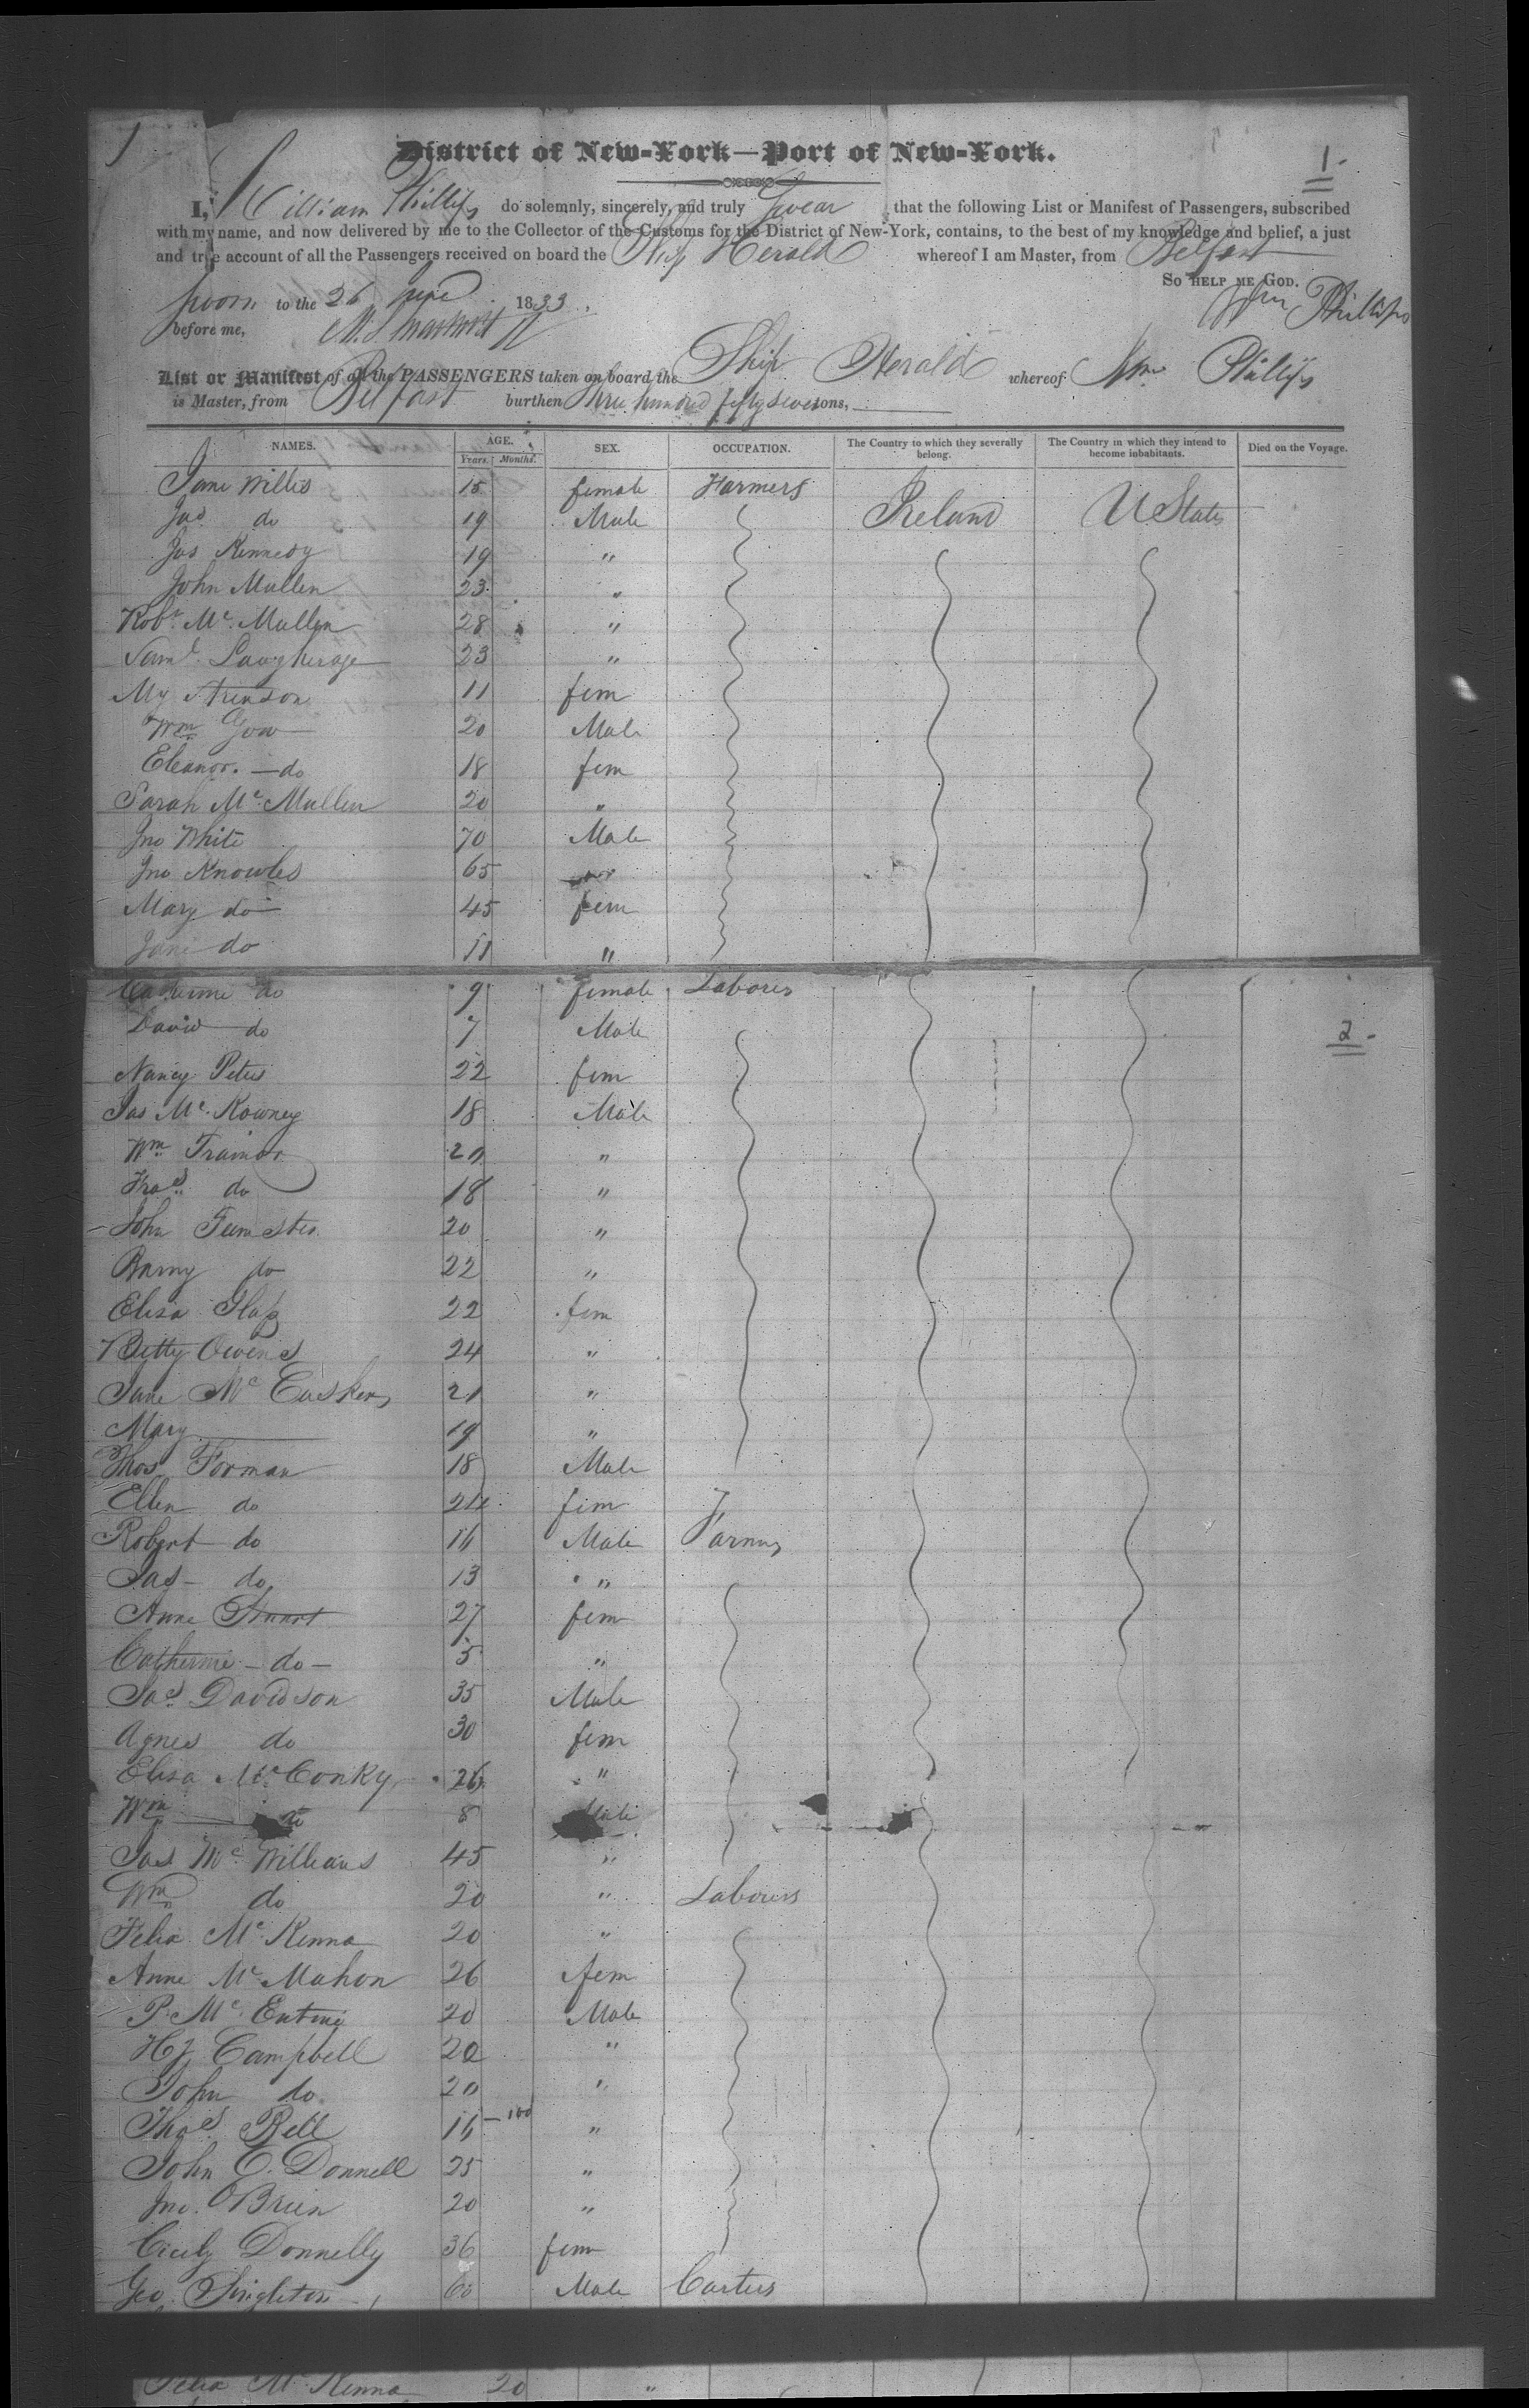 1
District of New-York—Port of New-York.
1-
I, William Phillips do solemnly, sincerely, and truly Swear that the following List or Manifest of Passengers, subscribed
with my name, and now delivered by me to the Collector of the Customs for the District of New-York, contains, to the best of my knowledge and belief, a just
and true account of all the Passengers received on board the Ship Herald whereof I am Master, from Belfast
So help me God.
Sworn to the 26 June 1833.
Wm Phillips
before me,
List or Manifest of all the PASSENGERS taken on board the Ship Herald whereof Wm Phillips
is Master, from Belfast burthen three hundred fifty seven tons,
NAMES. AGE. SEX. OCCUPATION. The Country to which they severally belong. The Country in which they intend to become inhabitants. Died on the Voyage.
Years. Months.
Jane Willis 15 female Farmers
Jas do 19 Male Ireland U States
Jas Kennedy 19 "
John Mullen 23 "
Robt. Mc. Mullen 28 "
Saml. 23 "
My 11 fem
Wm Gow 20 Male
Eleanor. — do 18 fem
Sarah Mc. Mullen 20 "
Jno White 70 Male
Jno Knowles 65
Mary do 45 fem
Jane do 11 "
Catherine do 9 female Laborers
David do 7 Male
2-
Nancy Peters 22 fem
Jas Mc. Kowney 18 Male
Wm Trainor 20 "
Thos. do 18 "
John 20 "
Barny do 22 "
Eliza 22 fem
Betty Owens 24 "
Jane Mc Cusker 21 "
Mary 19 "
Thos Forman 18 Male
Ellen do 24 fem
Robert do 16 Male Farmers
Jas — do 13 "
Anne Stuart 27 fem
Catherine — do — 5 "
Jas Davidson 35 Male
Agnes do 30 fem
Eliza Mc. Conky 26 "
Wm do 8 Male
Jas Mc. Williams 45 "
Wm do 20 " Laborers
Felix Mc. Kenna 20 "
Anne Mc. Mahon 26 fem
P. Mc. 20 Male
Hy Campbell 20 "
John do 20 "
Thos Bell 16 — "
John O. Donnell 25 "
Jno. OBrien 20 "
Cicely Donnelly 36 fem
Geo. Singleton 60 Male Carters
Felix Mc. Kenna 20 "